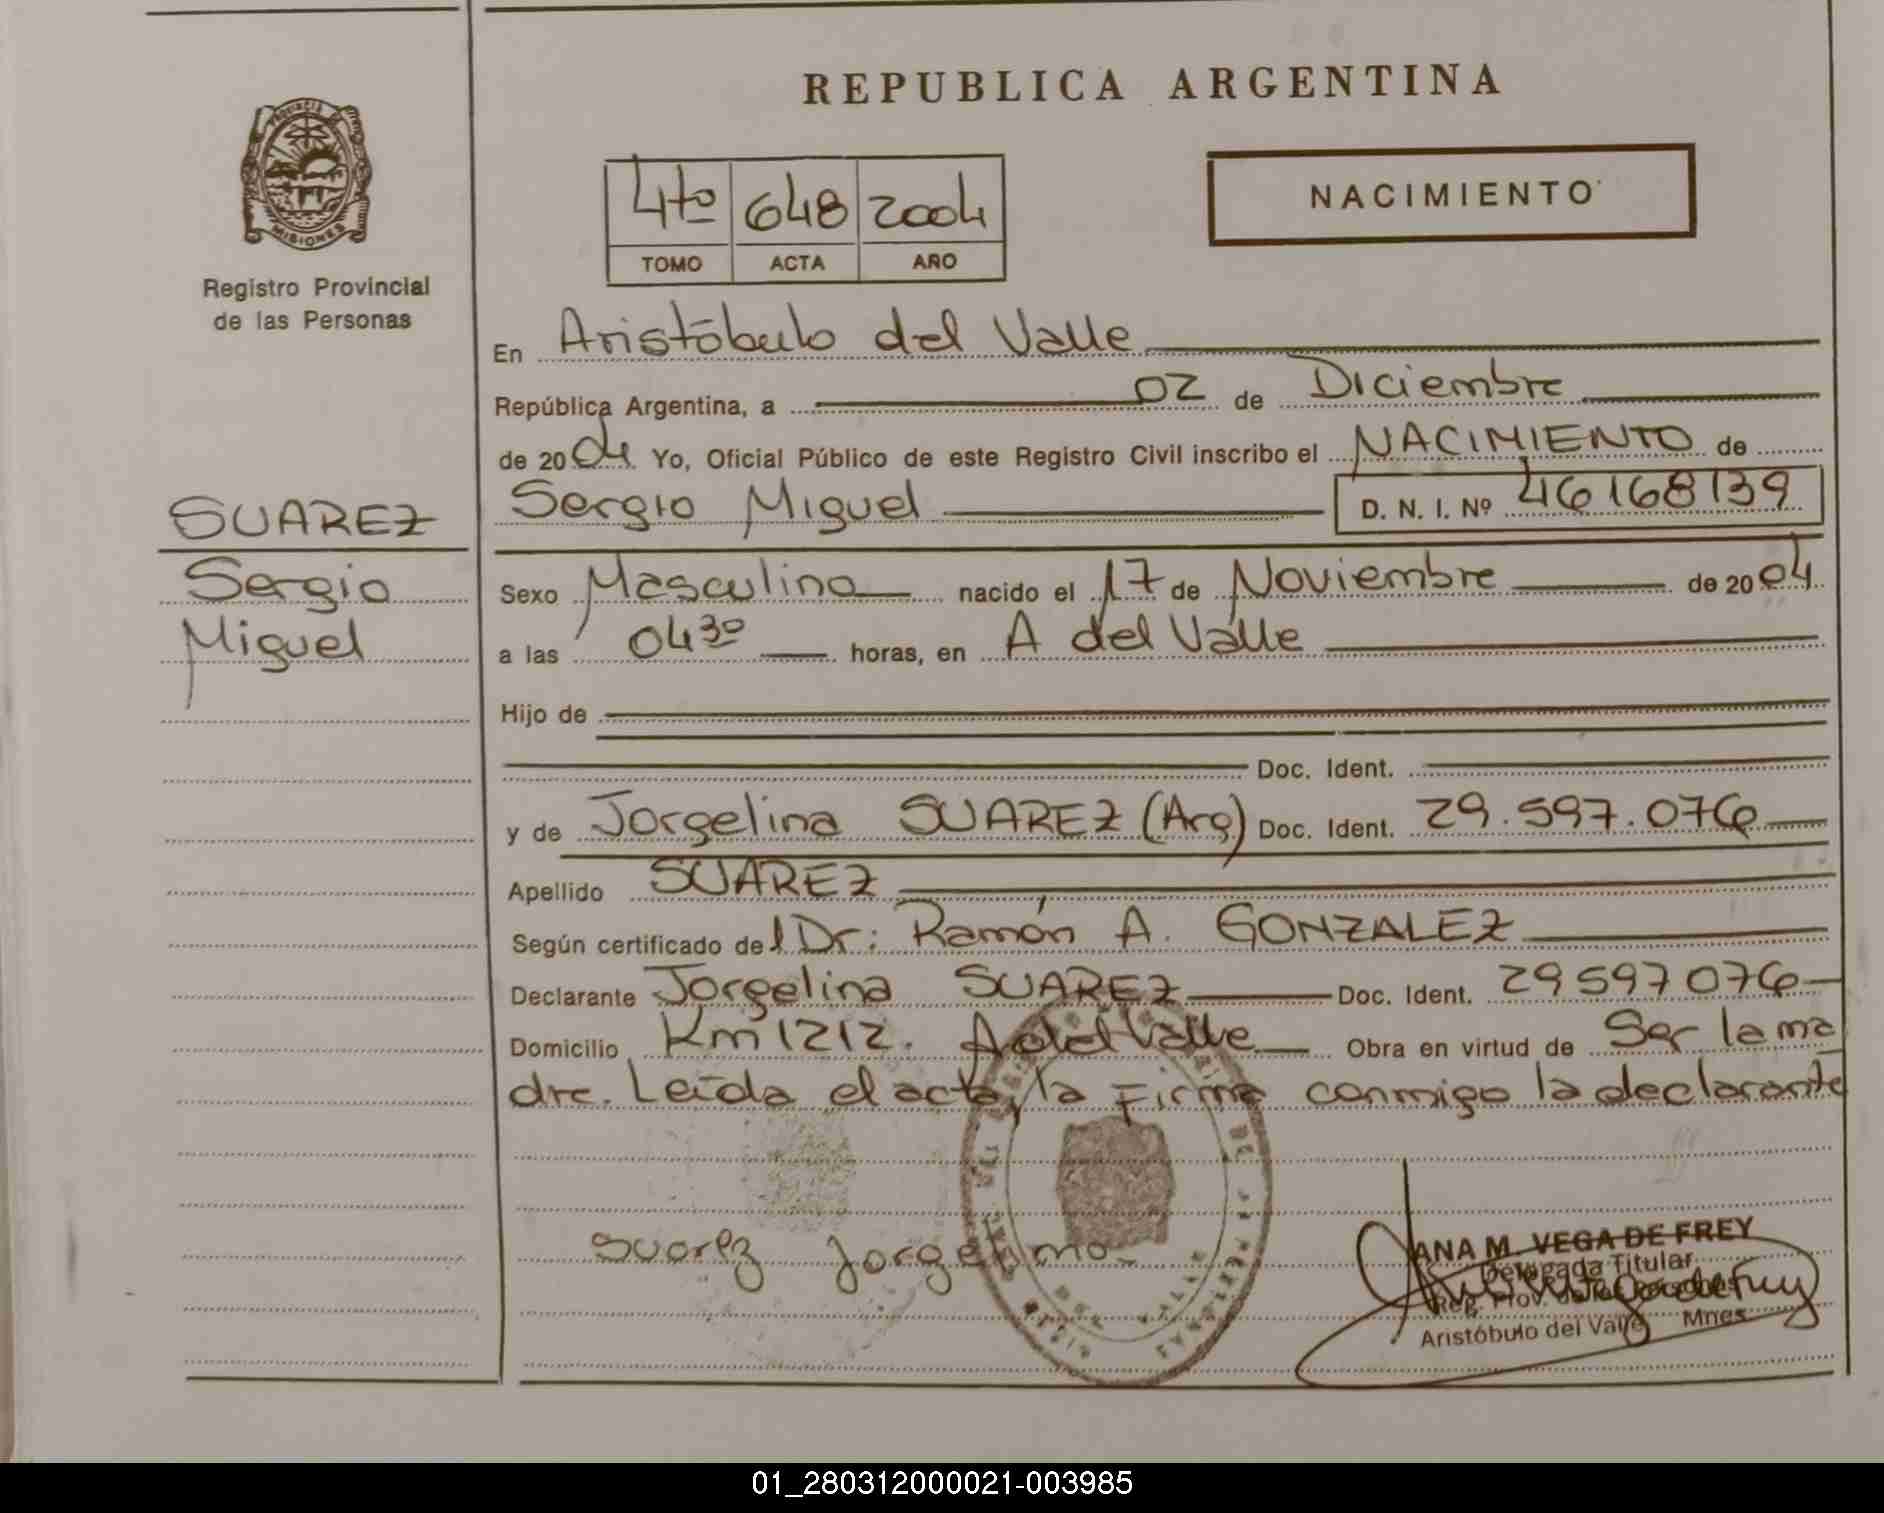 PROVINCIA DE
MISIONES
Registro Provincial
de las Personas
SUAREZ
Sergio
Miguel
REPUBLICA ARGENTINA
4to 648 2004
TOMO ACTA AÑO
NACIMIENTO
En Aristóbulo del Valle
República Argentina, a 02 de Diciembre
de 2004 Yo, Oficial Público de este Registro Civil inscribo el NACIMIENTO de
Sergio Miguel D. N. I. Nº 46168139
Sexo Masculino nacido el 17 de Noviembre de 2004
a las 04 30 horas, en A del Valle
Hijo de
Doc. Ident.
y de Jorgelina SUAREZ (Arg) Doc. Ident. 29.597.076
Apellido SUAREZ
Según certificado del Dr: Ramón A. GONZALEZ
Declarante Jorgelina SUAREZ Doc. Ident. 29597076
Domicilio Km 1212. A del Valle Obra en virtud de Ser la ma
dre. Leída el acta, la Firma conmigo la declarante
Suarez Jorgelina
ANA M. VEGA DE FREY
Delegada Titular
Reg. Prov. de las Personas
Aristóbulo del Valle Mnes
01_280312000021-003985